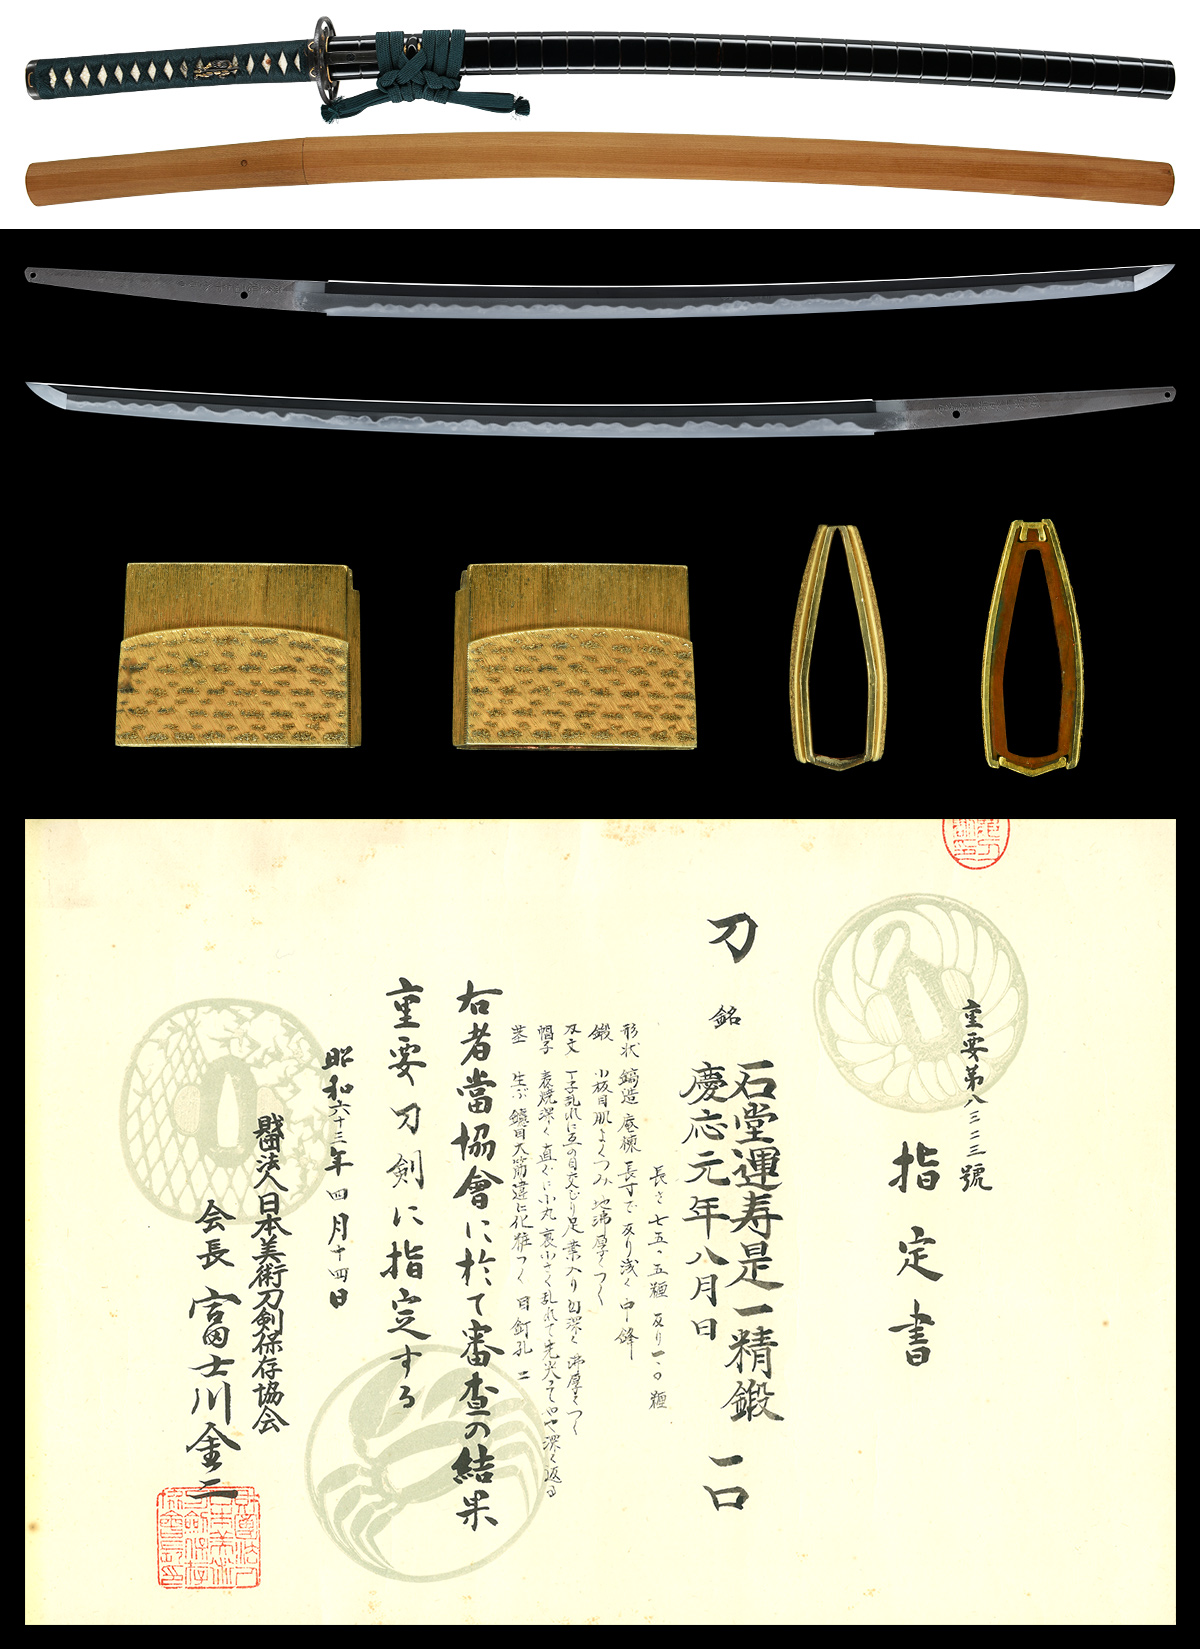 重要第八三二三號
指定書
刀 銘 石堂運寿是一精鍛 一口
慶応元年八月日
長さ 七五・五糎 反り 一・〇糎
形状 鎬造 庵棟 長寸で 反り浅く 中鋒
鍛 小板目肌よくつみ 地沸厚くつく
刃文 丁子乱れに互の目交じり 足 葉入り 匂深く 沸厚くつく
帽子 表焼深く 直ぐに小丸 裏小さく乱れて先尖ってやや深く返る
茎 生ぶ 鑢目大筋違に化粧つく 目釘孔 二
右者當協會に於て審査の結果
重要刀剣に指定する
昭和六十三年四月十四日
財団法人日本美術刀剣保存協会
会長 富士川金二